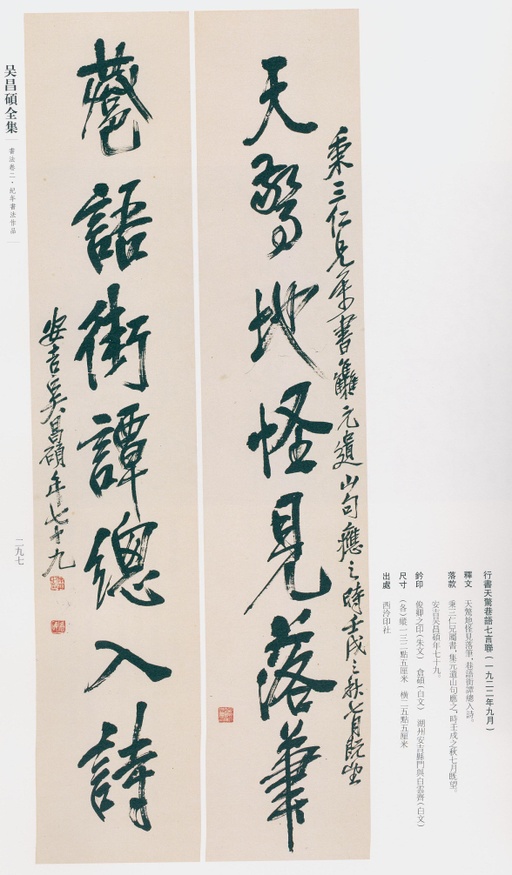 天驚地怪見落筆
秉三仁兄屬書集元遺山句應之時壬戌之秋七月既望
巷語街譚總入詩
安吉吳昌碩年七十九
行書天驚巷語七言聯（一九二二年九月）
釋文　天驚地怪見落筆，巷語街譚總入詩。
落款　秉三仁兄屬書，集元遺山句應之，時壬戌之秋七月既望。
安吉吳昌碩年七十九。
鈐印　俊卿之印（朱文）　倉碩（白文）　湖州安吉縣門與白雲齊（白文）
尺寸　（各）縱一三二點五厘米　橫二五點五厘米
出處　西泠印社
吴昌碩全集
書法卷二·紀年書法作品
二九七